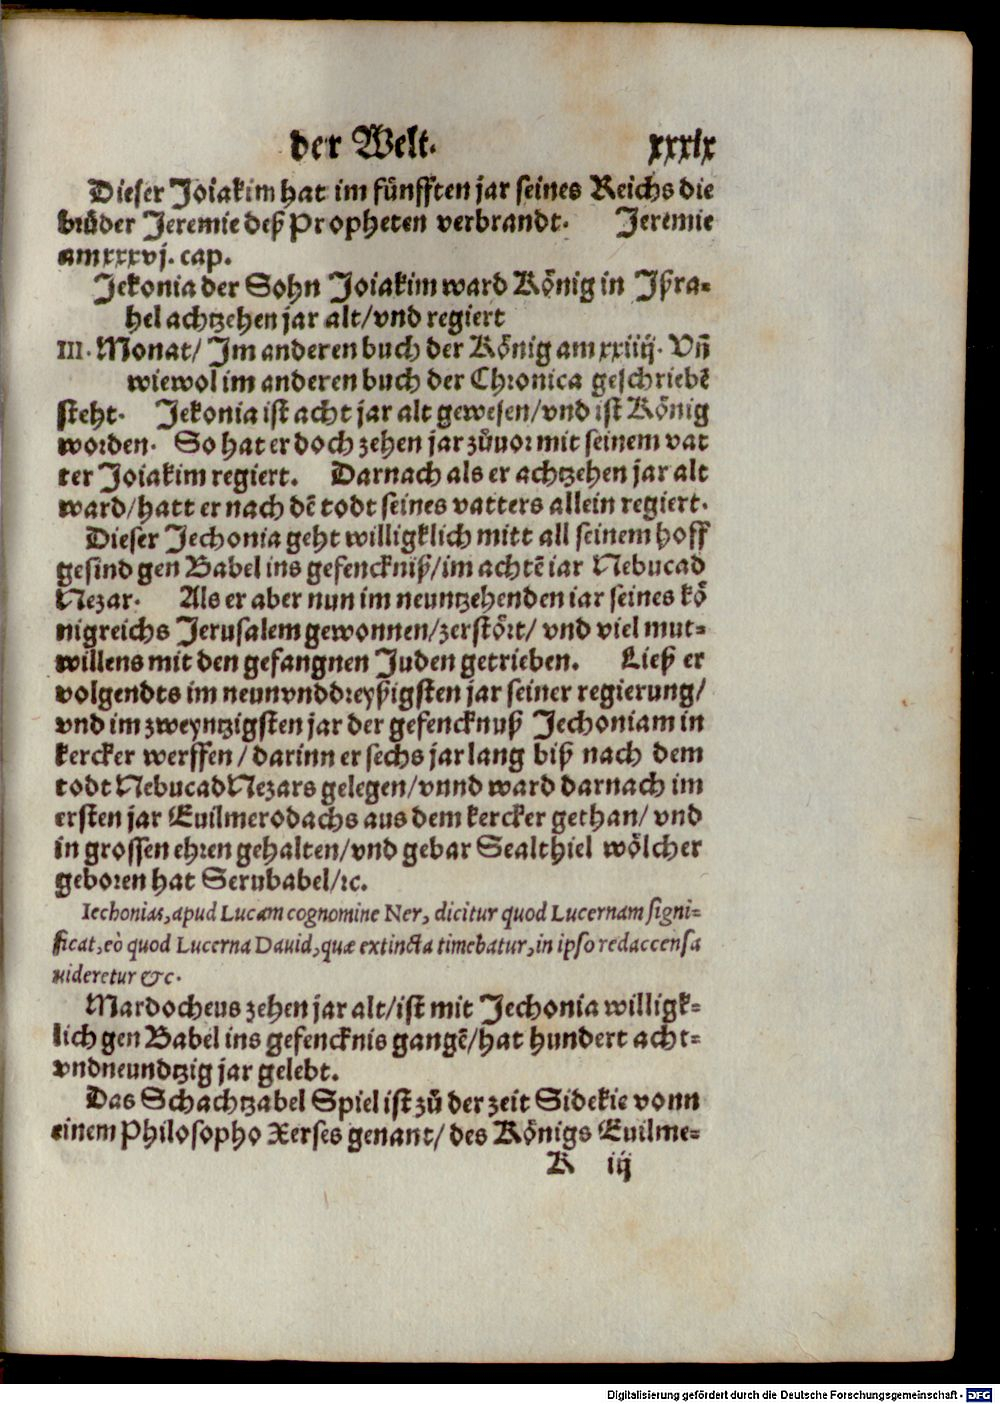 der Welt. xxxix
Dieser Joiakim hat im fünfften jar seines Reichs die
brůder Jeremie deß Propheten verbrandt. Jeremie
am xxxvj. cap.
Jekonia der Sohn Joiakim ward König in Jßra-
hel achtzehen jar alt/vnd regiert
III. Monat/ Im anderen buch der König am xxiiij. Vñ
wiewol im anderen buch der Chronica geschriebẽ
steht. Jekonia ist acht jar alt gewesen/vnd ist König
worden. So hat er doch zehen jar zůuor mit seinem vat
ter Joiakim regiert. Darnach als er achtzehen jar alt
ward/hatt er nach dẽ todt seines vatters allein regiert.
Dieser Jechonia geht willigklich mitt all seinem hoff
gesind gen Babel ins gefenckniß/im achtẽ iar Nebucad
Nezar. Als er aber nun im neuntzehenden iar seines kö
nigreichs Jerusalem gewonnen/zerstört/ vnd viel mut-
willens mit den gefangnen Juden getrieben. Ließ er
volgendts im neunvnddreyßigsten jar seiner regierung/
vnd im zweyntzigsten jar der gefencknuß Jechoniam in
kercker werffen/ darinn er sechs jar lang biß nach dem
todt NebucadNezars gelegen/vnnd ward darnach im
ersten jar Euilmerodachs aus dem kercker gethan/ vnd
in grossen ehren gehalten/vnd gebar Sealthiel wölcher
geboren hat Serubabel/ꝛc.
Iechonias, apud Lucam cognomine Ner, dicitur quod Lucernam signi-
ficat, eò quod Lucerna Dauid, quæ extincta timebatur, in ipso redaccensa
uideretur &c.
Mardocheus zehen jar alt/ist mit Jechonia willigk-
lich gen Babel ins gefencknis gangẽ/hat hundert acht-
vndneundtzig jar gelebt.
Das Schachtzabel Spiel ist zů der zeit Sidekie vonn
einem Philosopho Xerses genant/ des Königs Euilme-
K iij
Digitalisierung gefördert durch die Deutsche Forschungsgemeinschaft - DFG